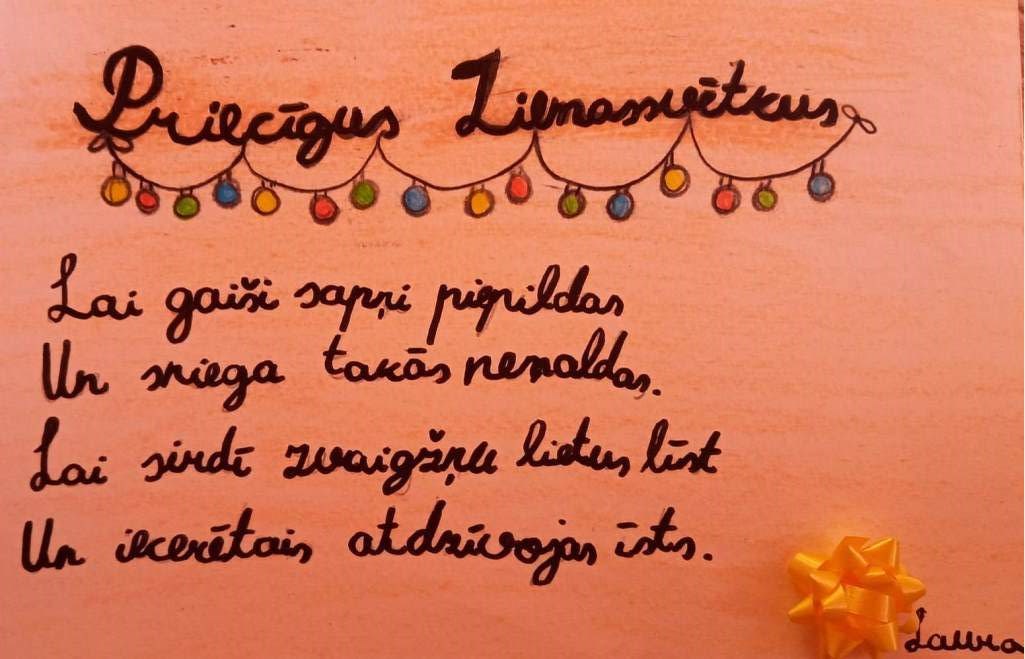 Priecīgus Ziemassvētkus
Lai gaiši sapņi piepildas
Un sniega takās nemaldas.
Lai sirdī zvaigžņu lietus līst
Un iecerētais atdzīvojas īsts.
Laura